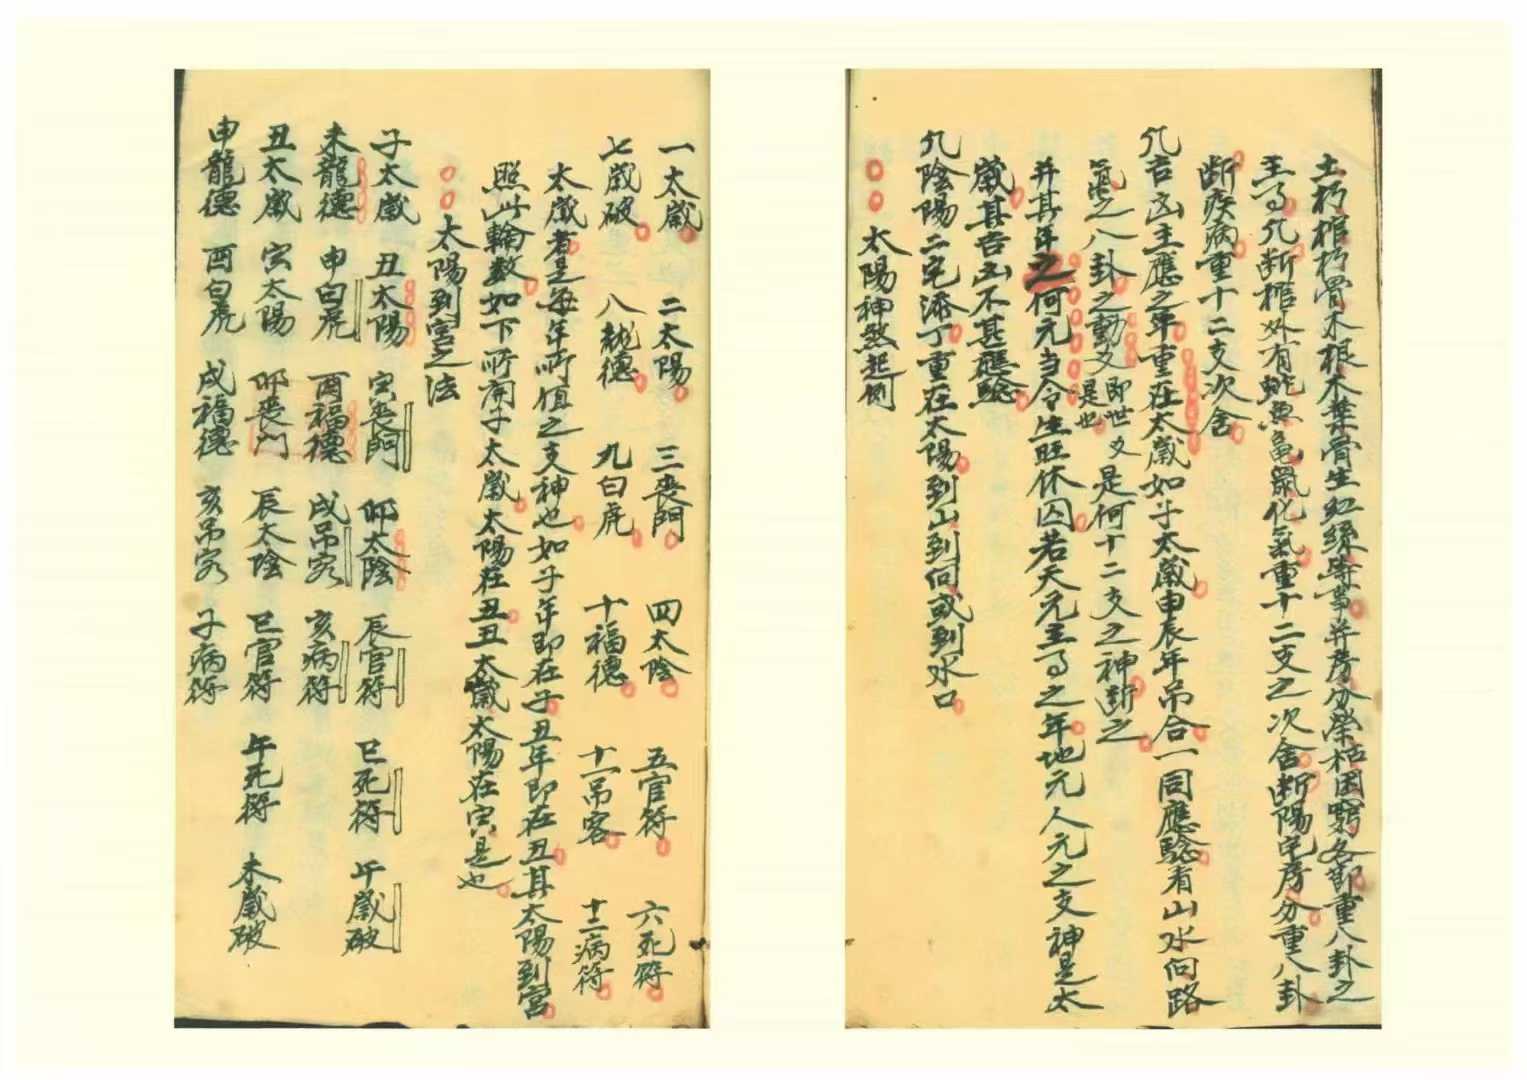 土朽棺朽骨木根木葉骨生紅絲等事并房分榮枯困窮各郡重八卦之
主事凡斷棺外有魚龜氣化氣重十二支之次舍斷陽宅房分重八卦
斷疾病重十二支次舍
凡吉凶主應之年重在太歲如子太歲申辰年吊合一同應驗看山水向路
氣之八卦之動爻即世爻是也是何十二支之神斷之
并其年之何元当令生旺休囚若天元主事之年地元人元之支神是太
歲其吉凶不甚應驗
凡陰陽二宅添丁重在太陽到山到向或到水口
太陽神煞起例
一太歲 二太陽 三喪門 四太陰 五官符 六死符
七歲破 八龍德 九白虎 十福德 十一吊客 十二病符
太歲者是每年所值之支神也如子年即在子丑年即在丑其太陽到宮
照此輪數如下所開子太歲太陽在丑丑太歲太陽在寅是也
太陽到宮之法
子太歲 丑太陽 寅喪門 卯太陰 辰官符 巳死符 午歲破
未龍德 申白虎 酉福德 戌吊客 亥病符
丑太歲 寅太陽 卯喪門 辰太陰 巳官符 午死符 未歲破
申龍德 酉白虎 戌福德 亥吊客 子病符